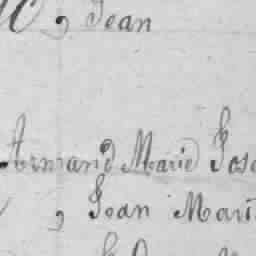 , Jean
Armand Marie Jose
, Jean Mari